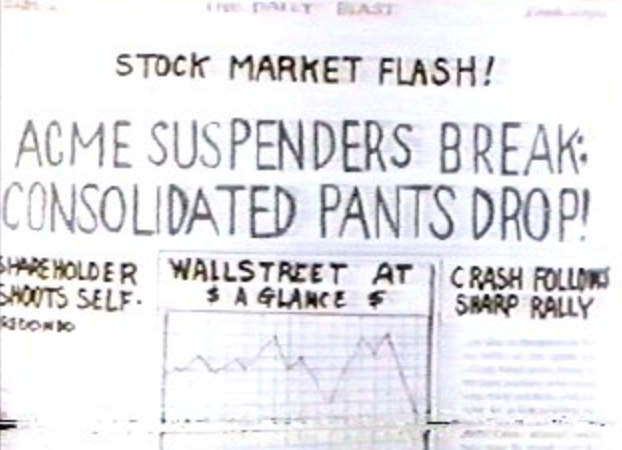 THE DAILY BLAST
STOCK MARKET FLASH!
ACME SUSPENDERS BREAK:
CONSOLIDATED PANTS DROP!
SHAREHOLDER
SHOOTS SELF.
WALLSTREET AT
$ A GLANCE $
CRASH FOLLOWS
SHARP RALLY